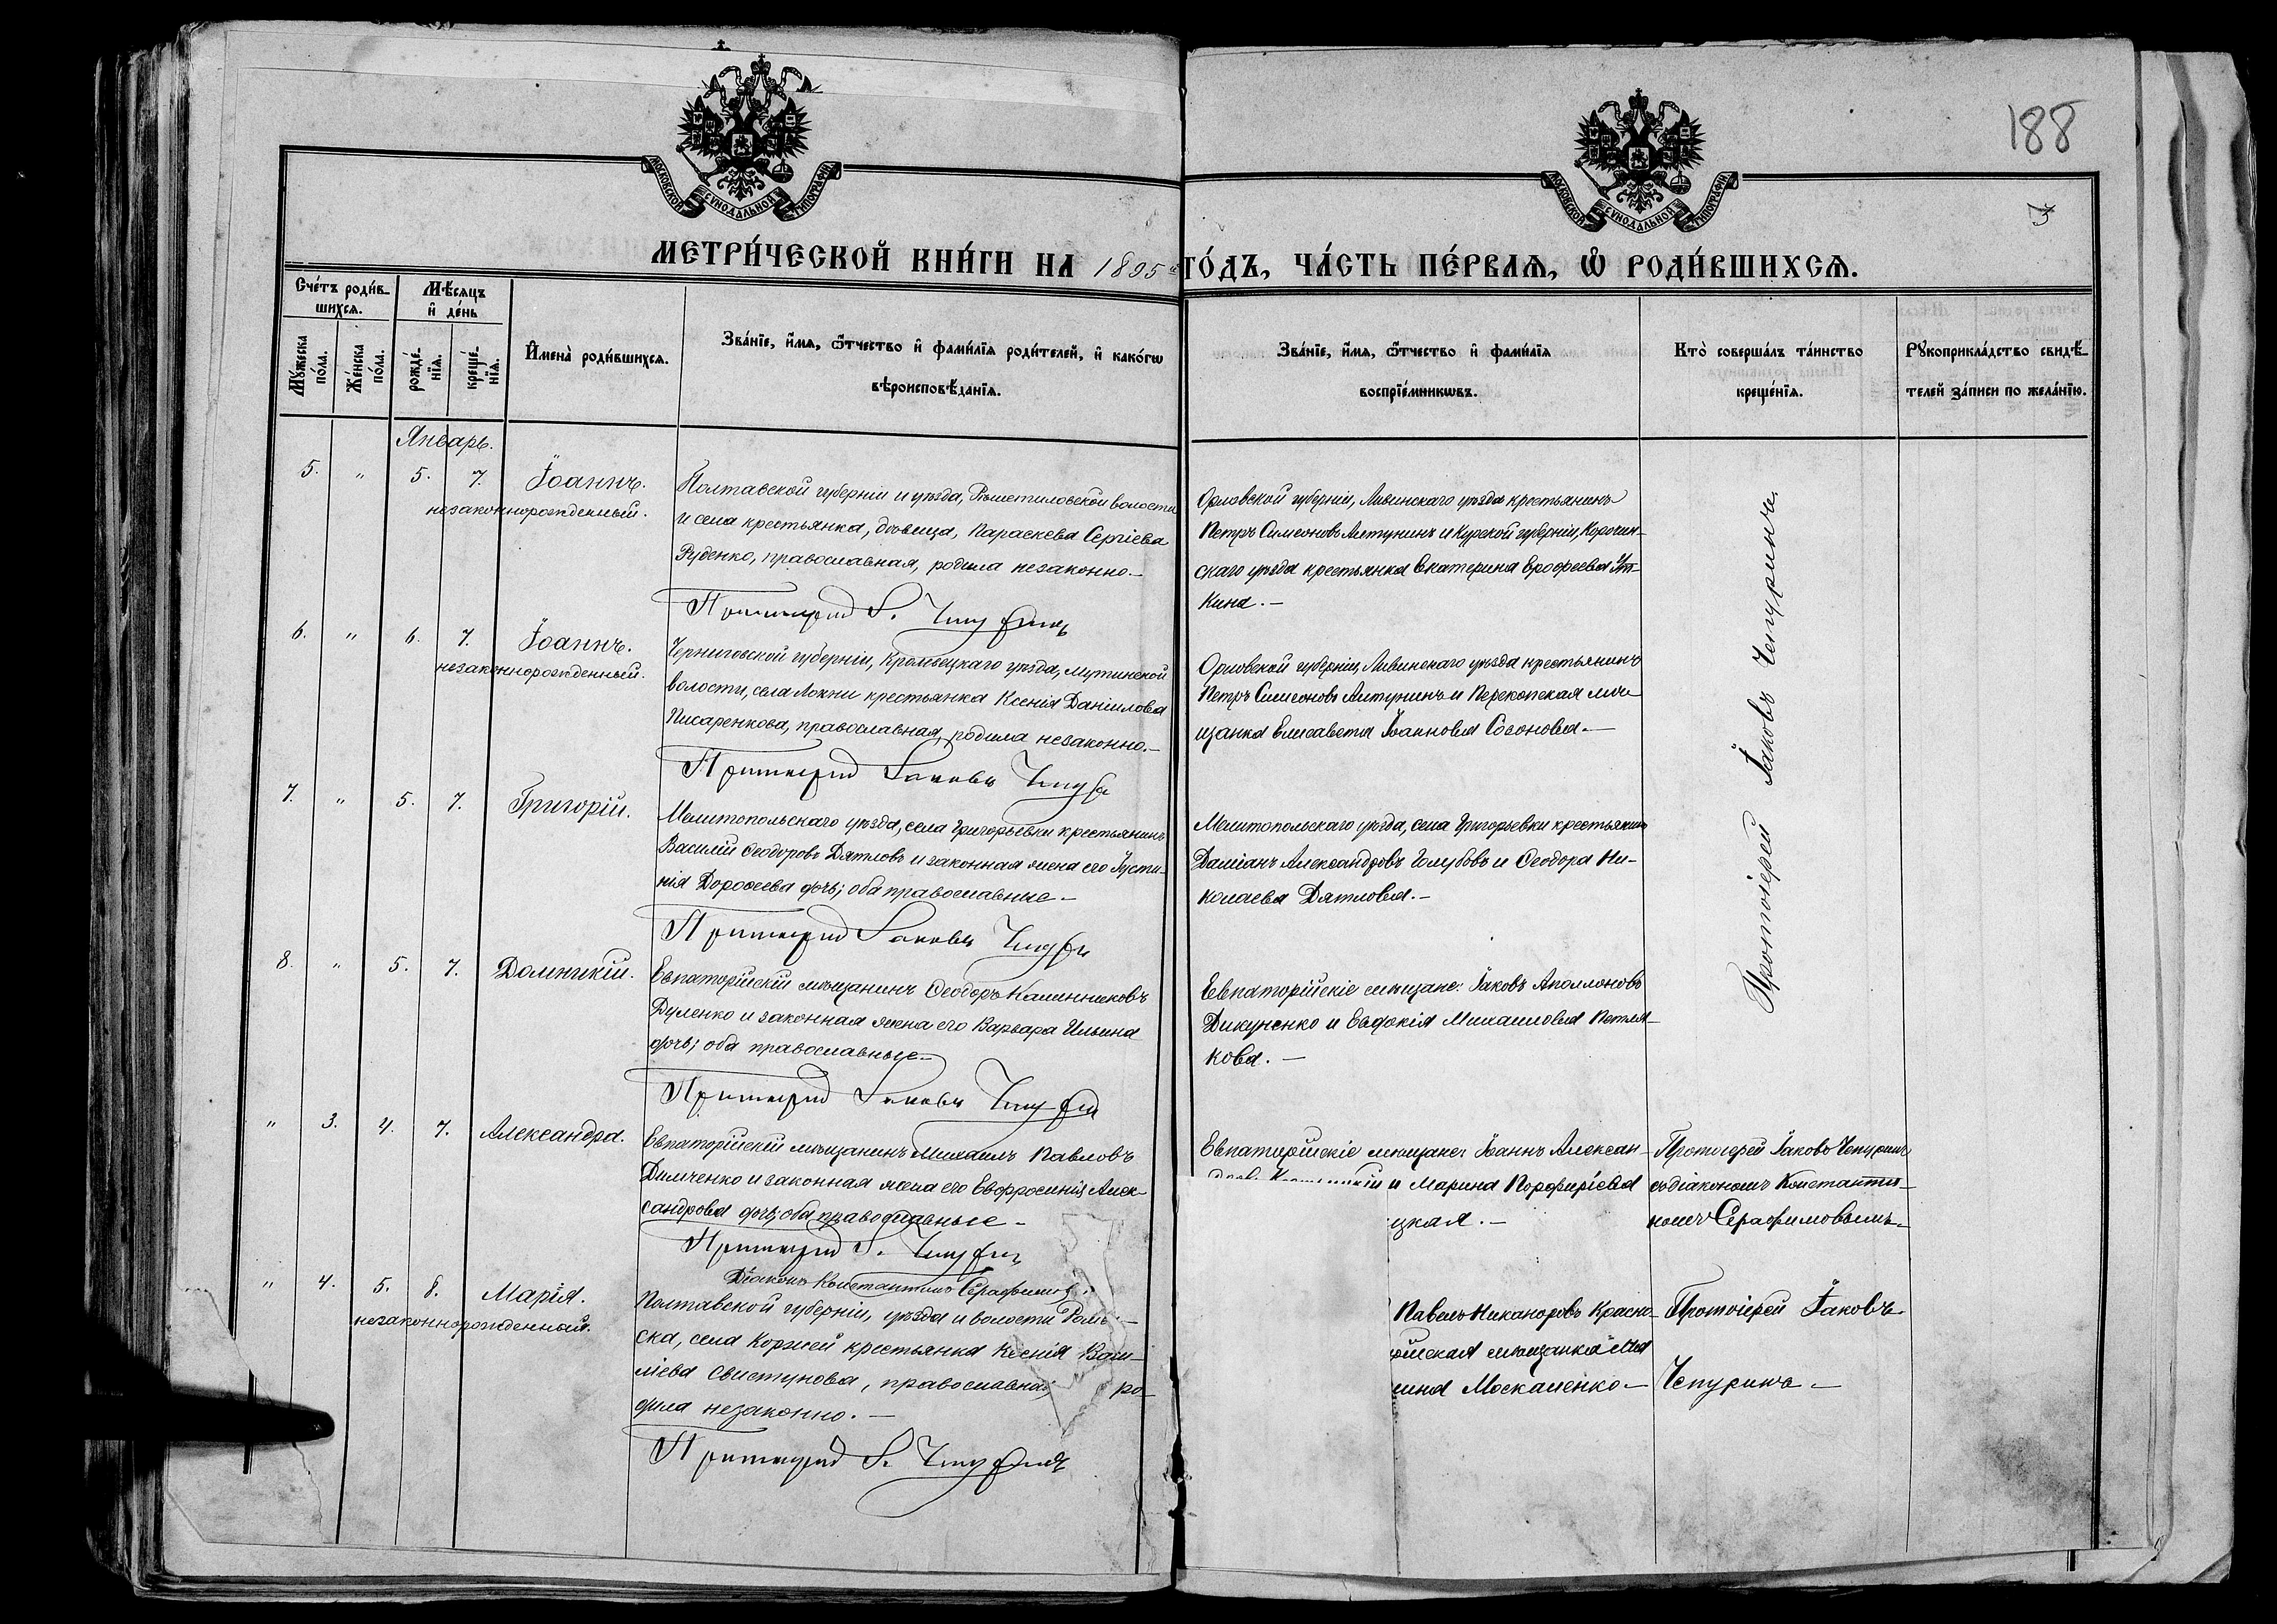 188
3
МОСКОВСКОЙ СѴНОДАЛЬНОЙ ТИПОГРАФІИ
МОСКОВСКОЙ СѴНОДАЛЬНОЙ ТИПОГРАФІИ
МЕТРИ́ЧЕСКОЙ КНИ́ГИ НА 1895 ГО́ДЪ, ЧА́СТЬ ПЕ́РВАѦ, Ѡ҆ РОДИ́ВШИХСѦ.
Сче́тъ роди́в-
шихсѧ.
Мѣ́сѧцъ
и҆ де́нь
Мꙋ́жеска
по́ла.
Же́нска
по́ла.
рожде́-
нїѧ.
креще́-
нїѧ.
И҆мена̀ роди́вшихсѧ.
Зва́нїе, и҆́мѧ, ѻ҆́тчество и҆ фами́лїѧ роди́телей, и҆ како́гѡ
вѣроисповѣ́данїѧ.
Зва́нїе, и҆́мѧ, ѻ҆́тчество и҆ фами́лїѧ
воспрїе́мникѡвъ.
Кто̀ соверша́лъ та́инство
креще́нїѧ.
Рꙋкоприкла́дство свидѣ́-
телей за́писи по жела́нїю.
Январь.
5. " 5. 7. Іоаннъ.
незаконнорожденный.
Полтавской губерніи и уѣзда, Рѣшетиловской волости
и села крестьянка, дѣвица, Параскева Сергіева
Руденко, православная, родила незаконно.—
Протоіерей І. Чепуринъ
Орловской губерніи, Ливинскаго уѣзда крестьянинъ
Петръ Симеоновъ Алтунинъ и Курской губерніи, Корочин-
скаго уѣзда крестьянка Екатерина Ерофеева Ут-
кина.—
6. " 6. 7. Іоаннъ.
незаконнорожденный.
Черниговской губерніи, Кролевецкаго уѣзда, Мутинской
волости, села Локни крестьянка Ксенія Даніилова
Писаренкова, православная, родила незаконно.—
Протоіерей Іаковъ Чепур
Орловской губерніи, Ливинскаго уѣзда крестьянинъ
Петръ Симеоновъ Алтунинъ и Перекопская мѣ-
щанка Елисавета Іоаннова Созонова.—
7. " 5. 7. Григорій.
Мелитопольскаго уѣзда, села Григорьевки крестьянинъ
Василій Ѳеодоровъ Дятловъ и законная жена его Іусти-
нія Дороѳеева дочь; оба православные—
Протоіерей Іаковъ Чепур
Мелитопольскаго уѣзда, села Григорьевки крестьянинъ
Даміанъ Александровъ Голубовъ и Ѳеодора Ни-
колаева Дятлова.—
8. " 5. 7. Домникій.
Евпаторійскій мѣщанинъ Ѳеодоръ Каллиниковъ
Дуленко и законная жена его Варвара Ильина
дочь; оба православные—
Протоіерей Іаковъ Чепур
Евпаторійскіе мѣщане: Іаковъ Аполлоновъ
Дикуненко и Евдокія Михаилова Петля-
кова.—
Протоіерей Іаковъ Чепуринъ.
" 3. 4. 7. Александра.
Евпаторійскій мѣщанинъ Михаилъ Павловъ
Димченко и законная жена его Евфросинія Алек-
сандрова дочь; оба православные—
Протоіерей І. Чепурин
Діаконъ Константинъ Серафимовъ.
Евпаторійскіе мѣщане: Іоаннъ Алексан-
и Марина Порфиріева
цкая.—
Протоіерей Іаковъ Чепуринъ
съ діакономъ Константи-
номъ Серафимовымъ.
" 4. 5. 8. Марія.
незаконнорожденная.
Полтавской губерніи, уѣзда и волости Ром-
ска, села Коржей крестьянка Ксенія Васи-
ліева Свистунова, православная, ро-
дила незаконно.—
Протоіерей І. Чепуринъ
Павелъ Никаноровъ Красно-
ійская мѣщанка
ина Москаленко—
Протоіерей Іаковъ
Чепуринъ—